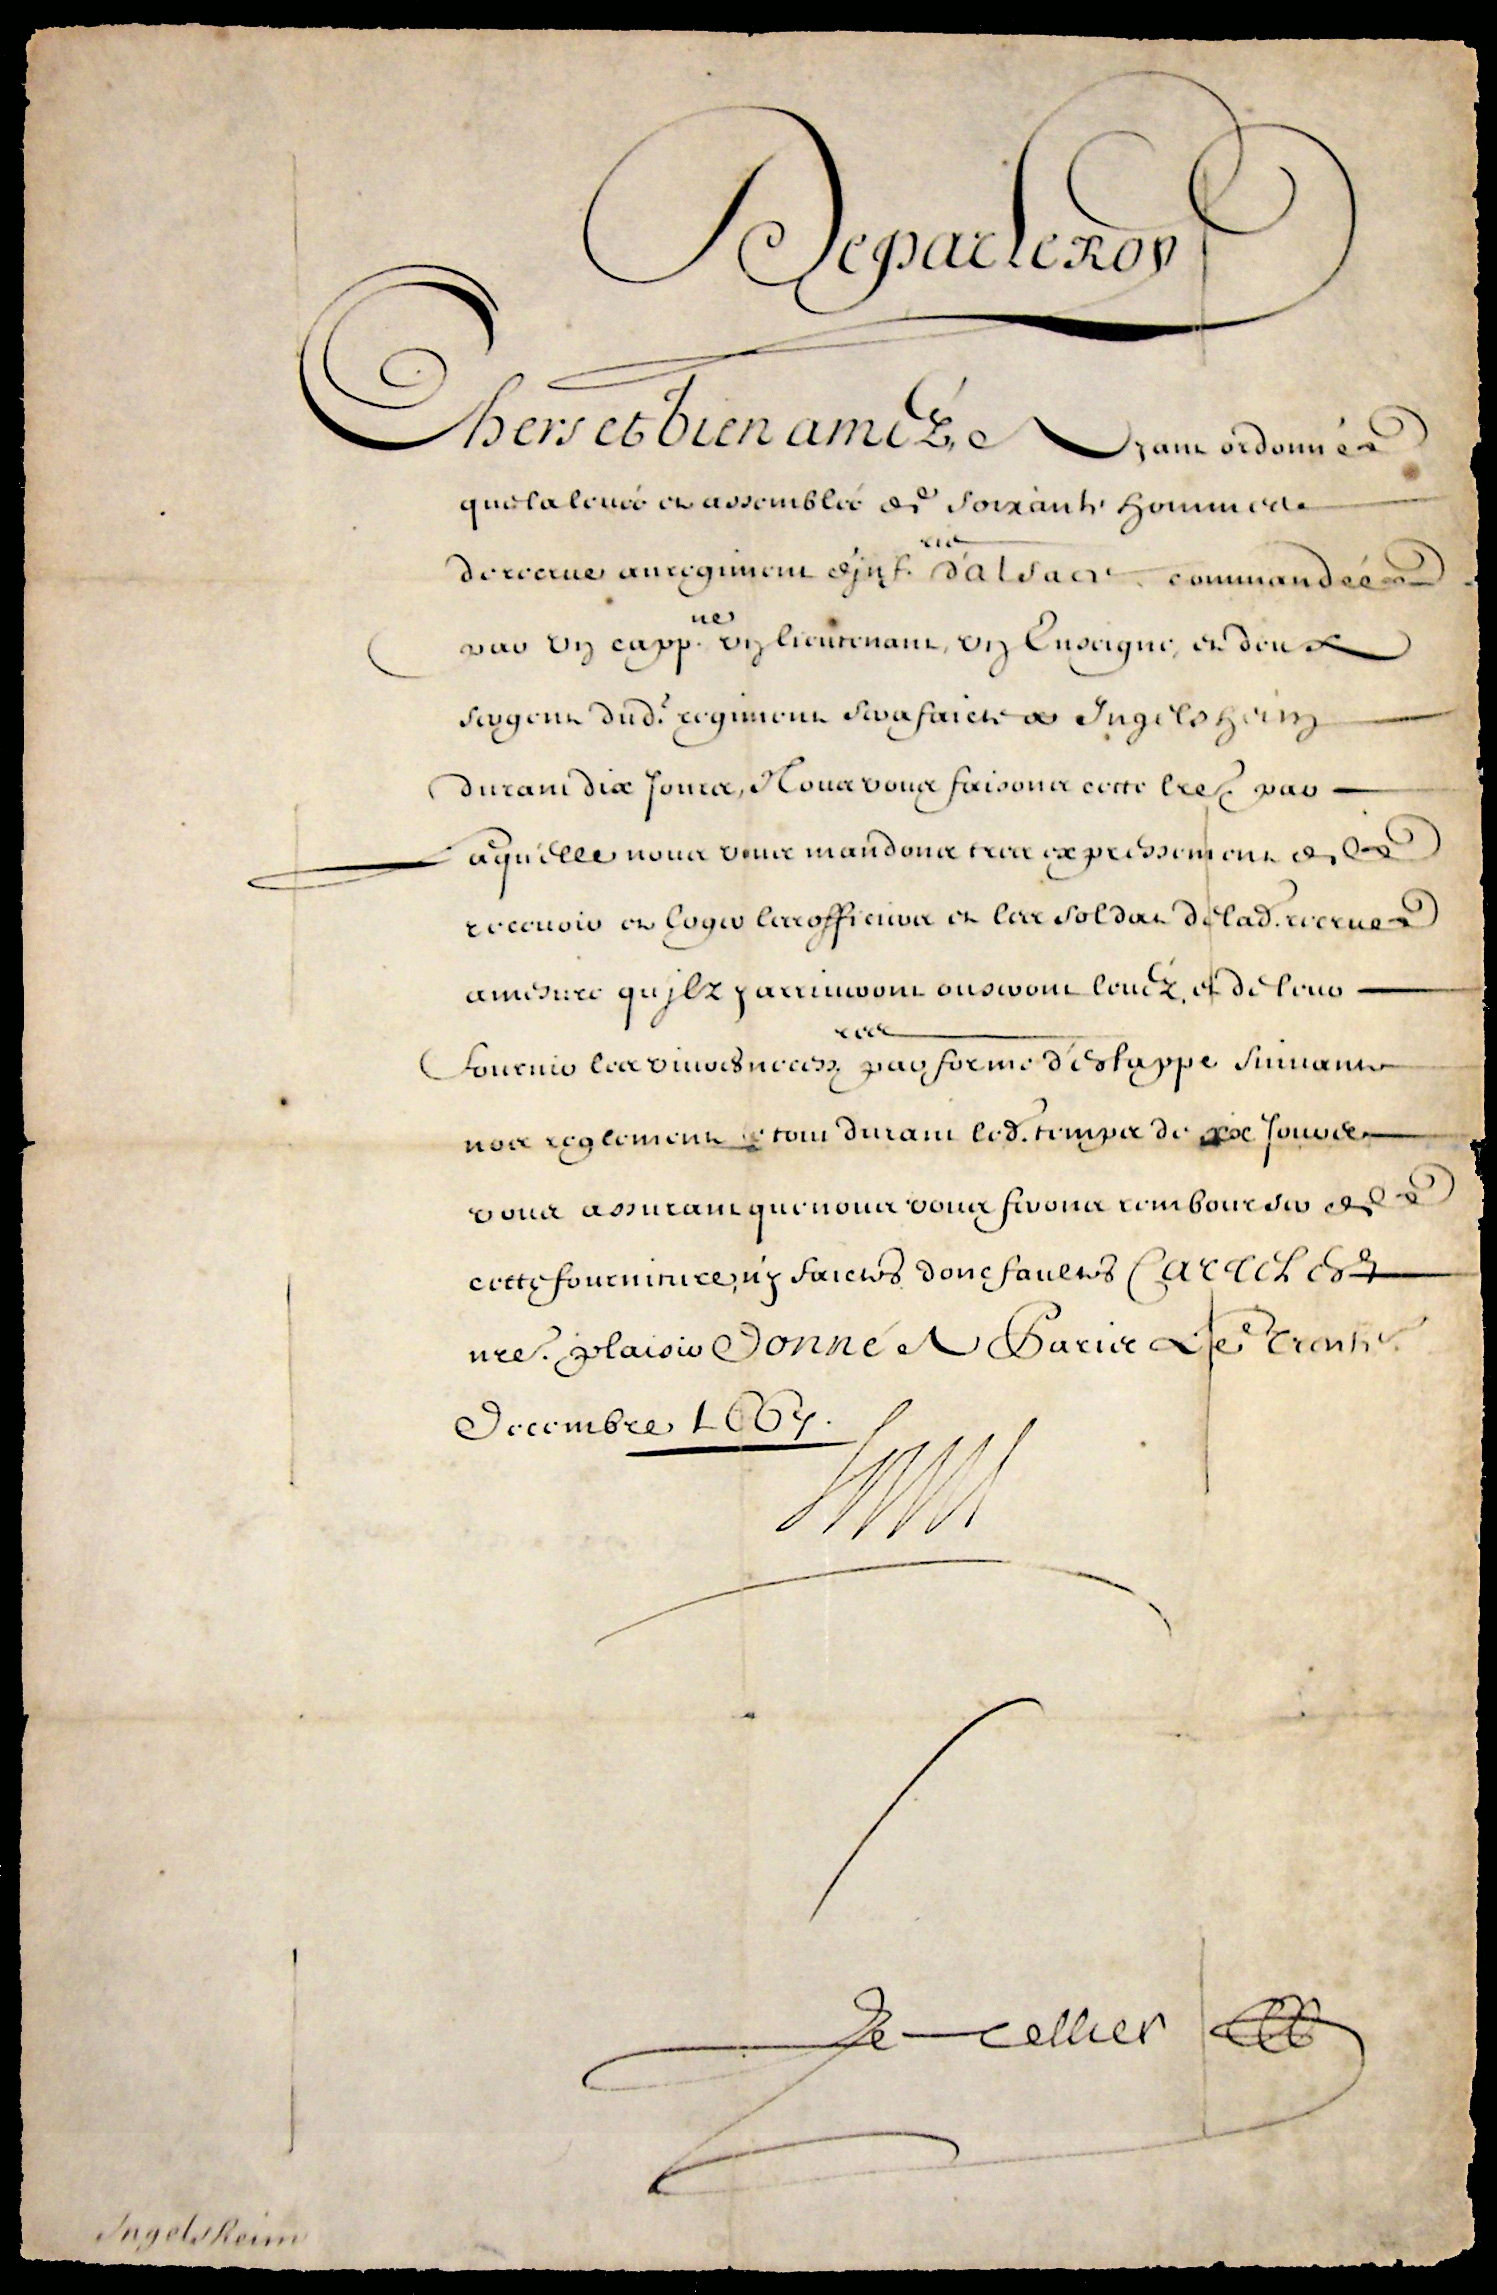 De par le Roy
Chers et bien amez, Ayant ordonné
que la leuée et assemblée de soixante hommes
de recrue au regiment d'jnf.rie d'alsace commandée
par vn capp.ne vn lieutenant, vn Enseigne, et deux
sergent dud. regiment sera faicte a Ingelsheim
durant dix jours, Nous vous faisons cette lre. par
laquelle nous vous mandons tres expressement de
receuoir et loger les officiers et les soldat de lad. recrue
a mesure qu'jlz y arriueront ou seront leuéz, et de leur
fournir les viures necess.res par forme d'estappe suiuant
nos reglement le tout durant led. temps de dix jours
vous assurant que nous vous ferons rembourser de
cette fourniture, n'y faictes donc faulte Car tel est
nre. plaisir Donné A Paris Le trente
Decembre 1667.
Louis
Le Tellier
Ingelsheim